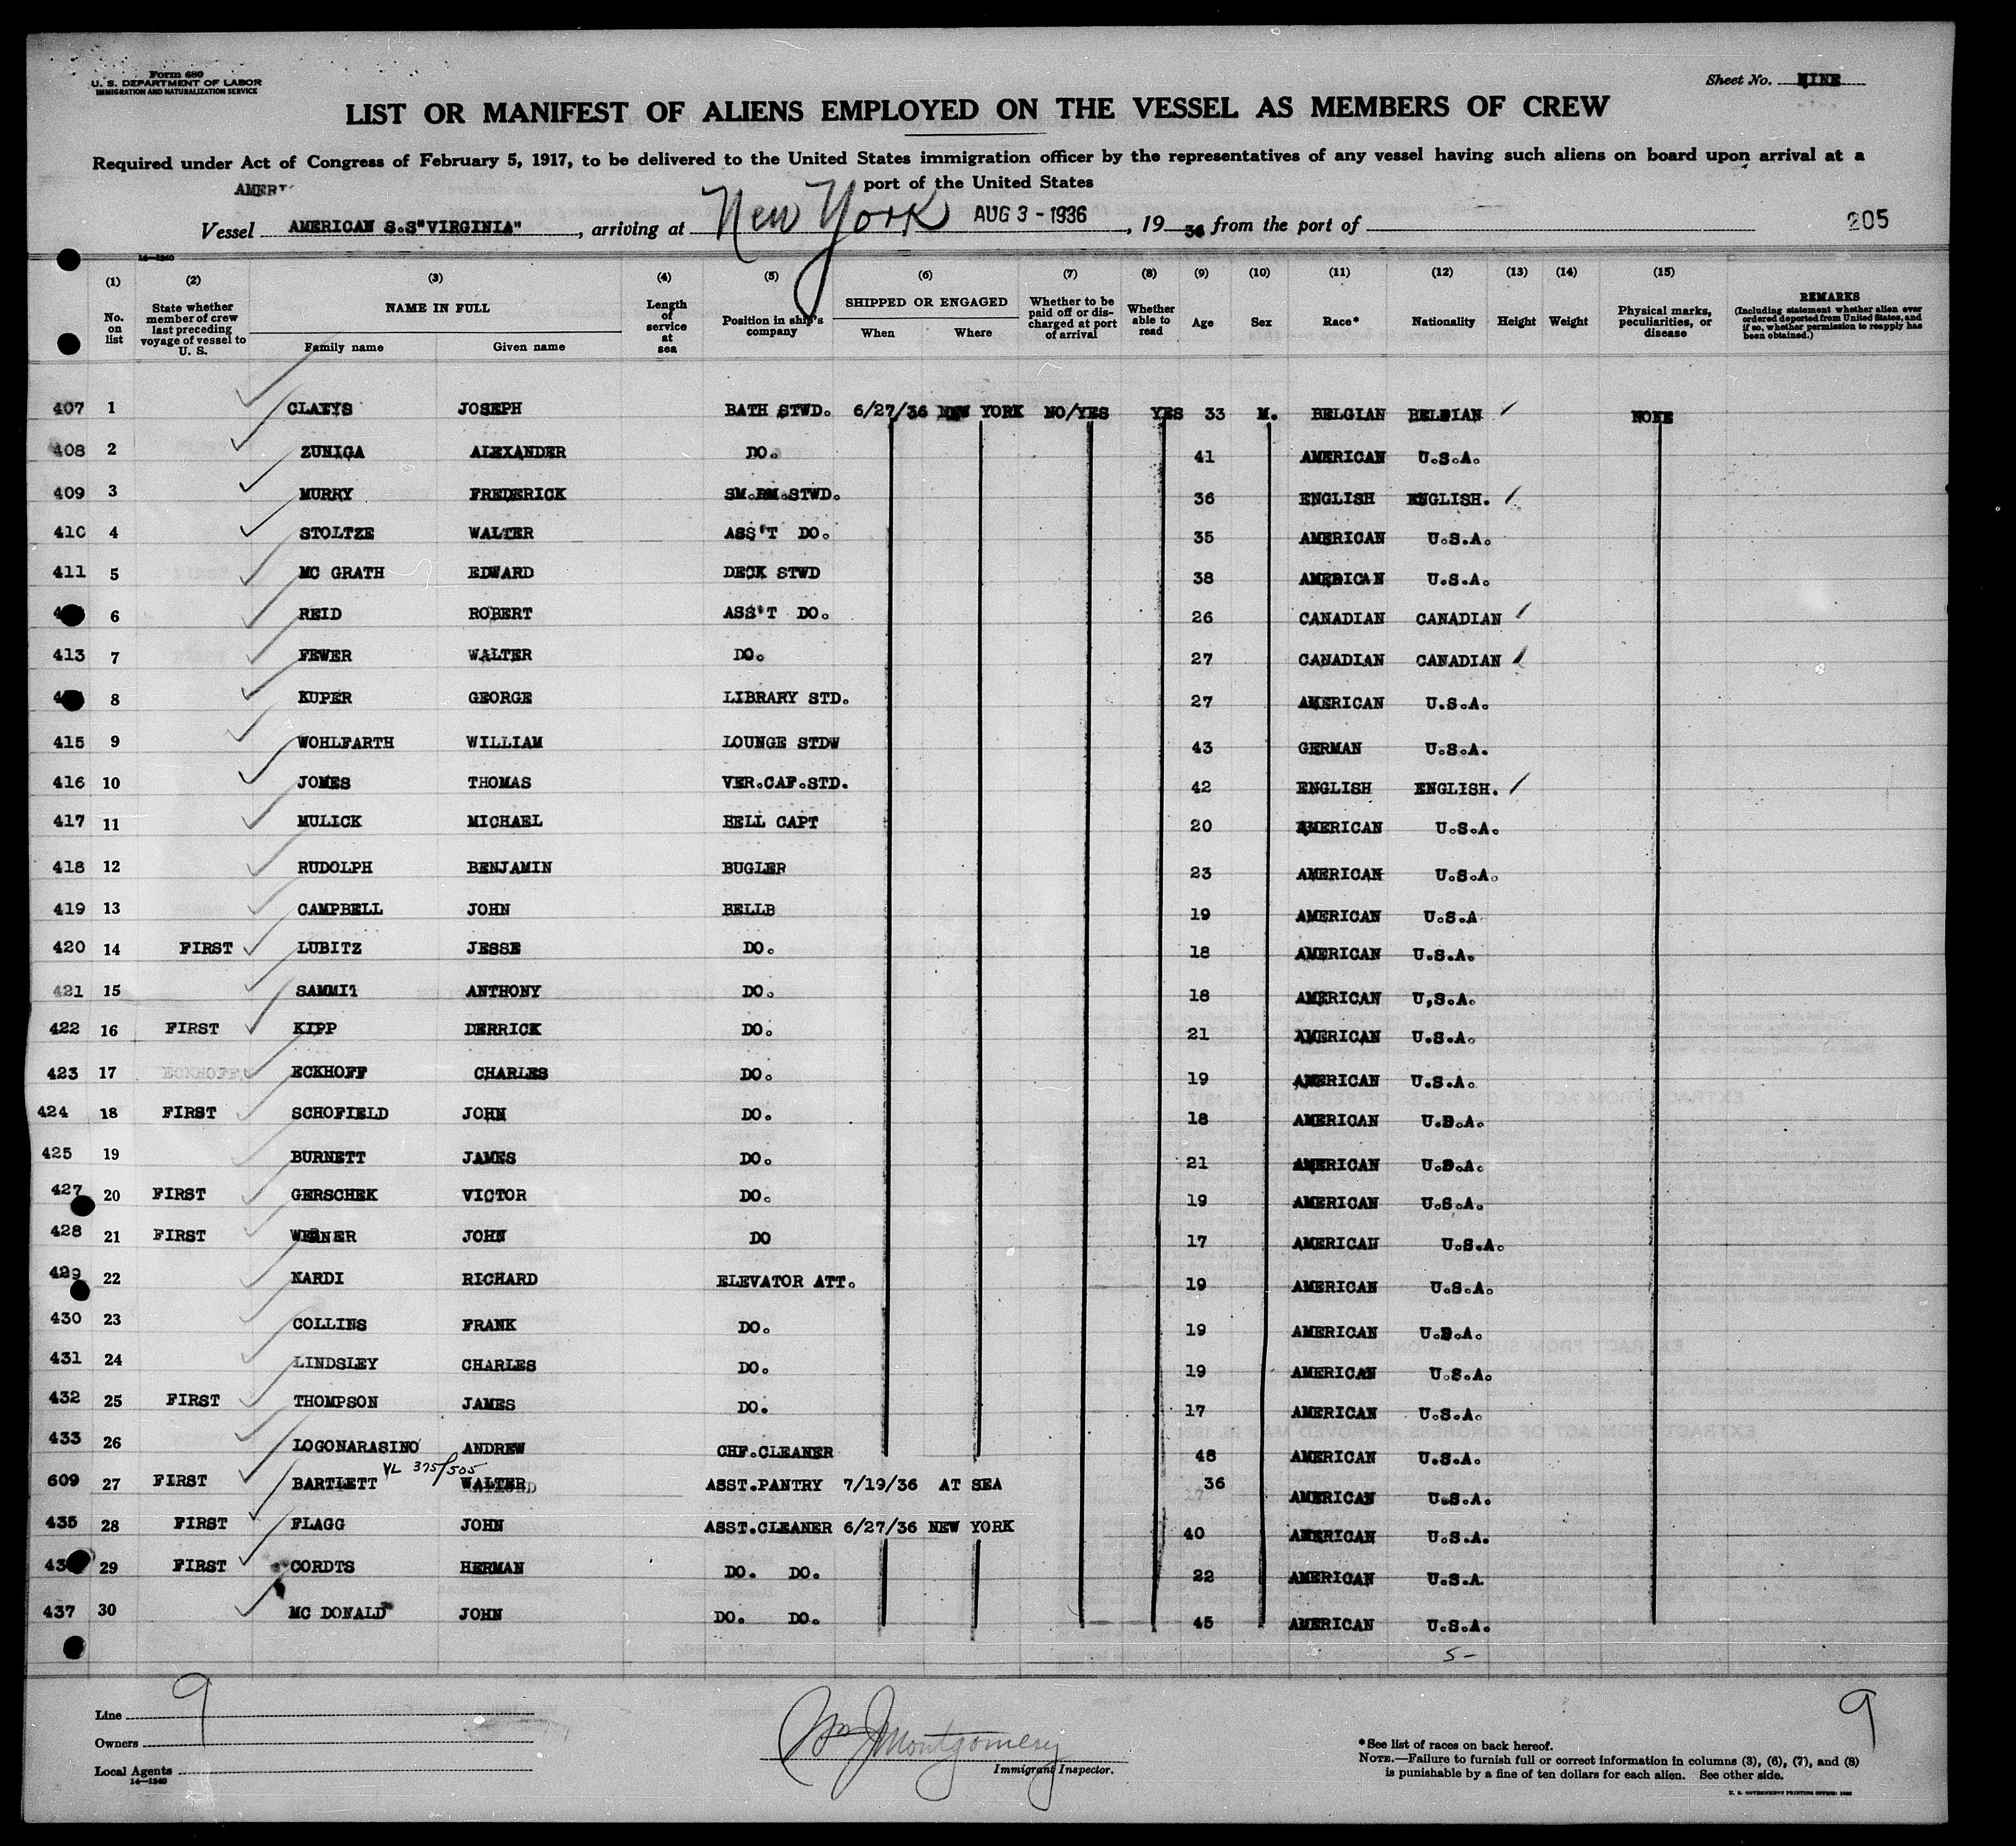 Form 680
U. S. DEPARTMENT OF LABOR
IMMIGRATION AND NATURALIZATION SERVICE
Sheet No. NINE
LIST OR MANIFEST OF ALIENS EMPLOYED ON THE VESSEL AS MEMBERS OF CREW
Required under Act of Congress of February 5, 1917, to be delivered to the United States immigration officer by the representatives of any vessel having such aliens on board upon arrival at a
port of the United States
Vessel AMERICAN S.S"VIRGINIA", arriving at New York AUG 3 - 1936, 19 36 from the port of
205
14—1240
(1) (2) (3) (4) (5) (6) (7) (8) (9) (10) (11) (12) (13) (14) (15)
No. on list
State whether member of crew last preceding voyage of vessel to U. S.
NAME IN FULL
Family name Given name
Length of service at sea
Position in ship's company
SHIPPED OR ENGAGED
When Where
Whether to be paid off or discharged at port of arrival
Whether able to read
Age Sex Race* Nationality Height Weight
Physical marks, peculiarities, or disease
REMARKS
(Including statement whether alien ever ordered deported from United States, and if so, whether permission to reapply has been obtained.)
407 1 CLAEYS JOSEPH BATH STWD. 6/27/36 NEW YORK NO/YES YES 33 M. BELGIAN BELGIAN NONE
408 2 ZUNIGA ALEXANDER DO. 41 AMERICAN U.S.A.
409 3 MURRY FREDERICK SM.RM.STWD. 36 ENGLISH ENGLISH.
410 4 STOLTZE WALTER ASS'T DO. 35 AMERICAN U.S.A.
411 5 MC GRATH EDWARD DECK STWD 38 AMERICAN U.S.A.
6 REID ROBERT ASS'T DO. 26 CANADIAN CANADIAN
413 7 FEWER WALTER DO. 27 CANADIAN CANADIAN
8 KUPER GEORGE LIBRARY STD. 27 AMERICAN U.S.A.
415 9 WOHLFARTH WILLIAM LOUNGE STDW 43 GERMAN U.S.A.
416 10 JONES THOMAS VER.CAF.STD. 42 ENGLISH ENGLISH.
417 11 MULICK MICHAEL BELL CAPT 20 AMERICAN U.S.A.
418 12 RUDOLPH BENJAMIN BUGLER 23 AMERICAN U.S.A.
419 13 CAMPBELL JOHN BELLB 19 AMERICAN U.S.A
420 14 FIRST LUBITZ JESSE DO. 18 AMERICAN U.S.A.
421 15 SAMMIT ANTHONY DO. 18 AMERICAN U,S.A.
422 16 FIRST KIPP DERRICK DO. 21 AMERICAN U.S.A.
423 17 ECKHOFF ECKHOFF CHARLES DO. 19 AMERICAN U.S.A.
424 18 FIRST SCHOFIELD JOHN DO. 18 AMERICAN U.S.A.
425 19 BURNETT JAMES DO. 21 AMERICAN U.S.A.
427 20 FIRST GERSCHEK VICTOR DO. 19 AMERICAN U.S.A.
428 21 FIRST WERNER JOHN DO 17 AMERICAN U.S.A.
429 22 NARDI RICHARD ELEVATOR ATT. 19 AMERICAN U.S.A.
430 23 COLLINS FRANK DO. 19 AMERICAN U.S.A.
431 24 LINDSLEY CHARLES DO. 19 AMERICAN U.S.A.
432 25 FIRST THOMPSON JAMES DO. 17 AMERICAN U.S.A.
433 26 LOGONARASINO ANDREW CHF.CLEANER 48 AMERICAN U.S.A.
VL 375/505
609 27 FIRST BARTLETT WALTER ASST.PANTRY 7/19/36 AT SEA 36 AMERICAN U.S.A.
435 28 FIRST FLAGG JOHN ASST.CLEANER 6/27/36 NEW YORK 40 AMERICAN U.S.A.
29 FIRST CORDTS HERMAN DO. DO. 22 AMERICAN U.S.A.
437 30 MC DONALD JOHN DO. DO. 45 AMERICAN U.S.A.
5-
9 9
Line
Owners
Local Agents
14—1240
Wm J Montgomery
Immigrant Inspector.
*See list of races on back hereof.
NOTE.—Failure to furnish full or correct information in columns (3), (6), (7), and (8)
is punishable by a fine of ten dollars for each alien. See other side.